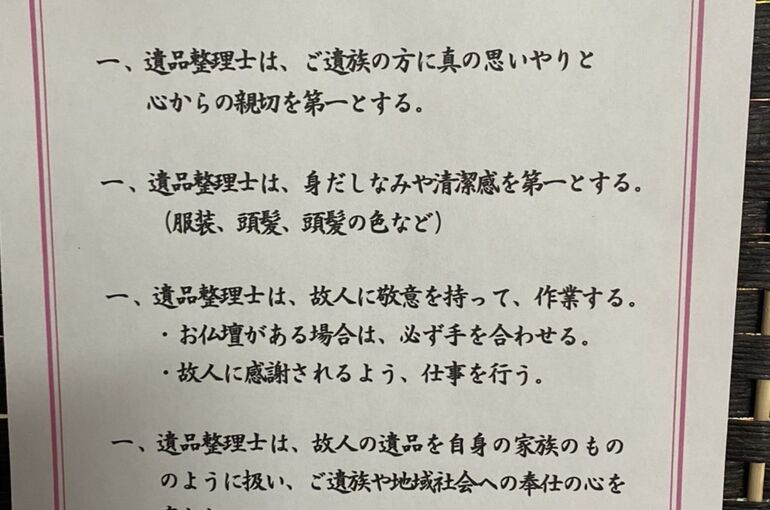 一、遺品整理士は、ご遺族の方に真の思いやりと
心からの親切を第一とする。
一、遺品整理士は、身だしなみや清潔感を第一とする。
(服装、頭髪、頭髪の色など)
一、遺品整理士は、故人に敬意を持って、作業する。
・お仏壇がある場合は、必ず手を合わせる。
・故人に感謝されるよう、仕事を行う。
一、遺品整理士は、故人の遺品を自身の家族のもの
のように扱い、ご遺族や地域社会への奉仕の心を